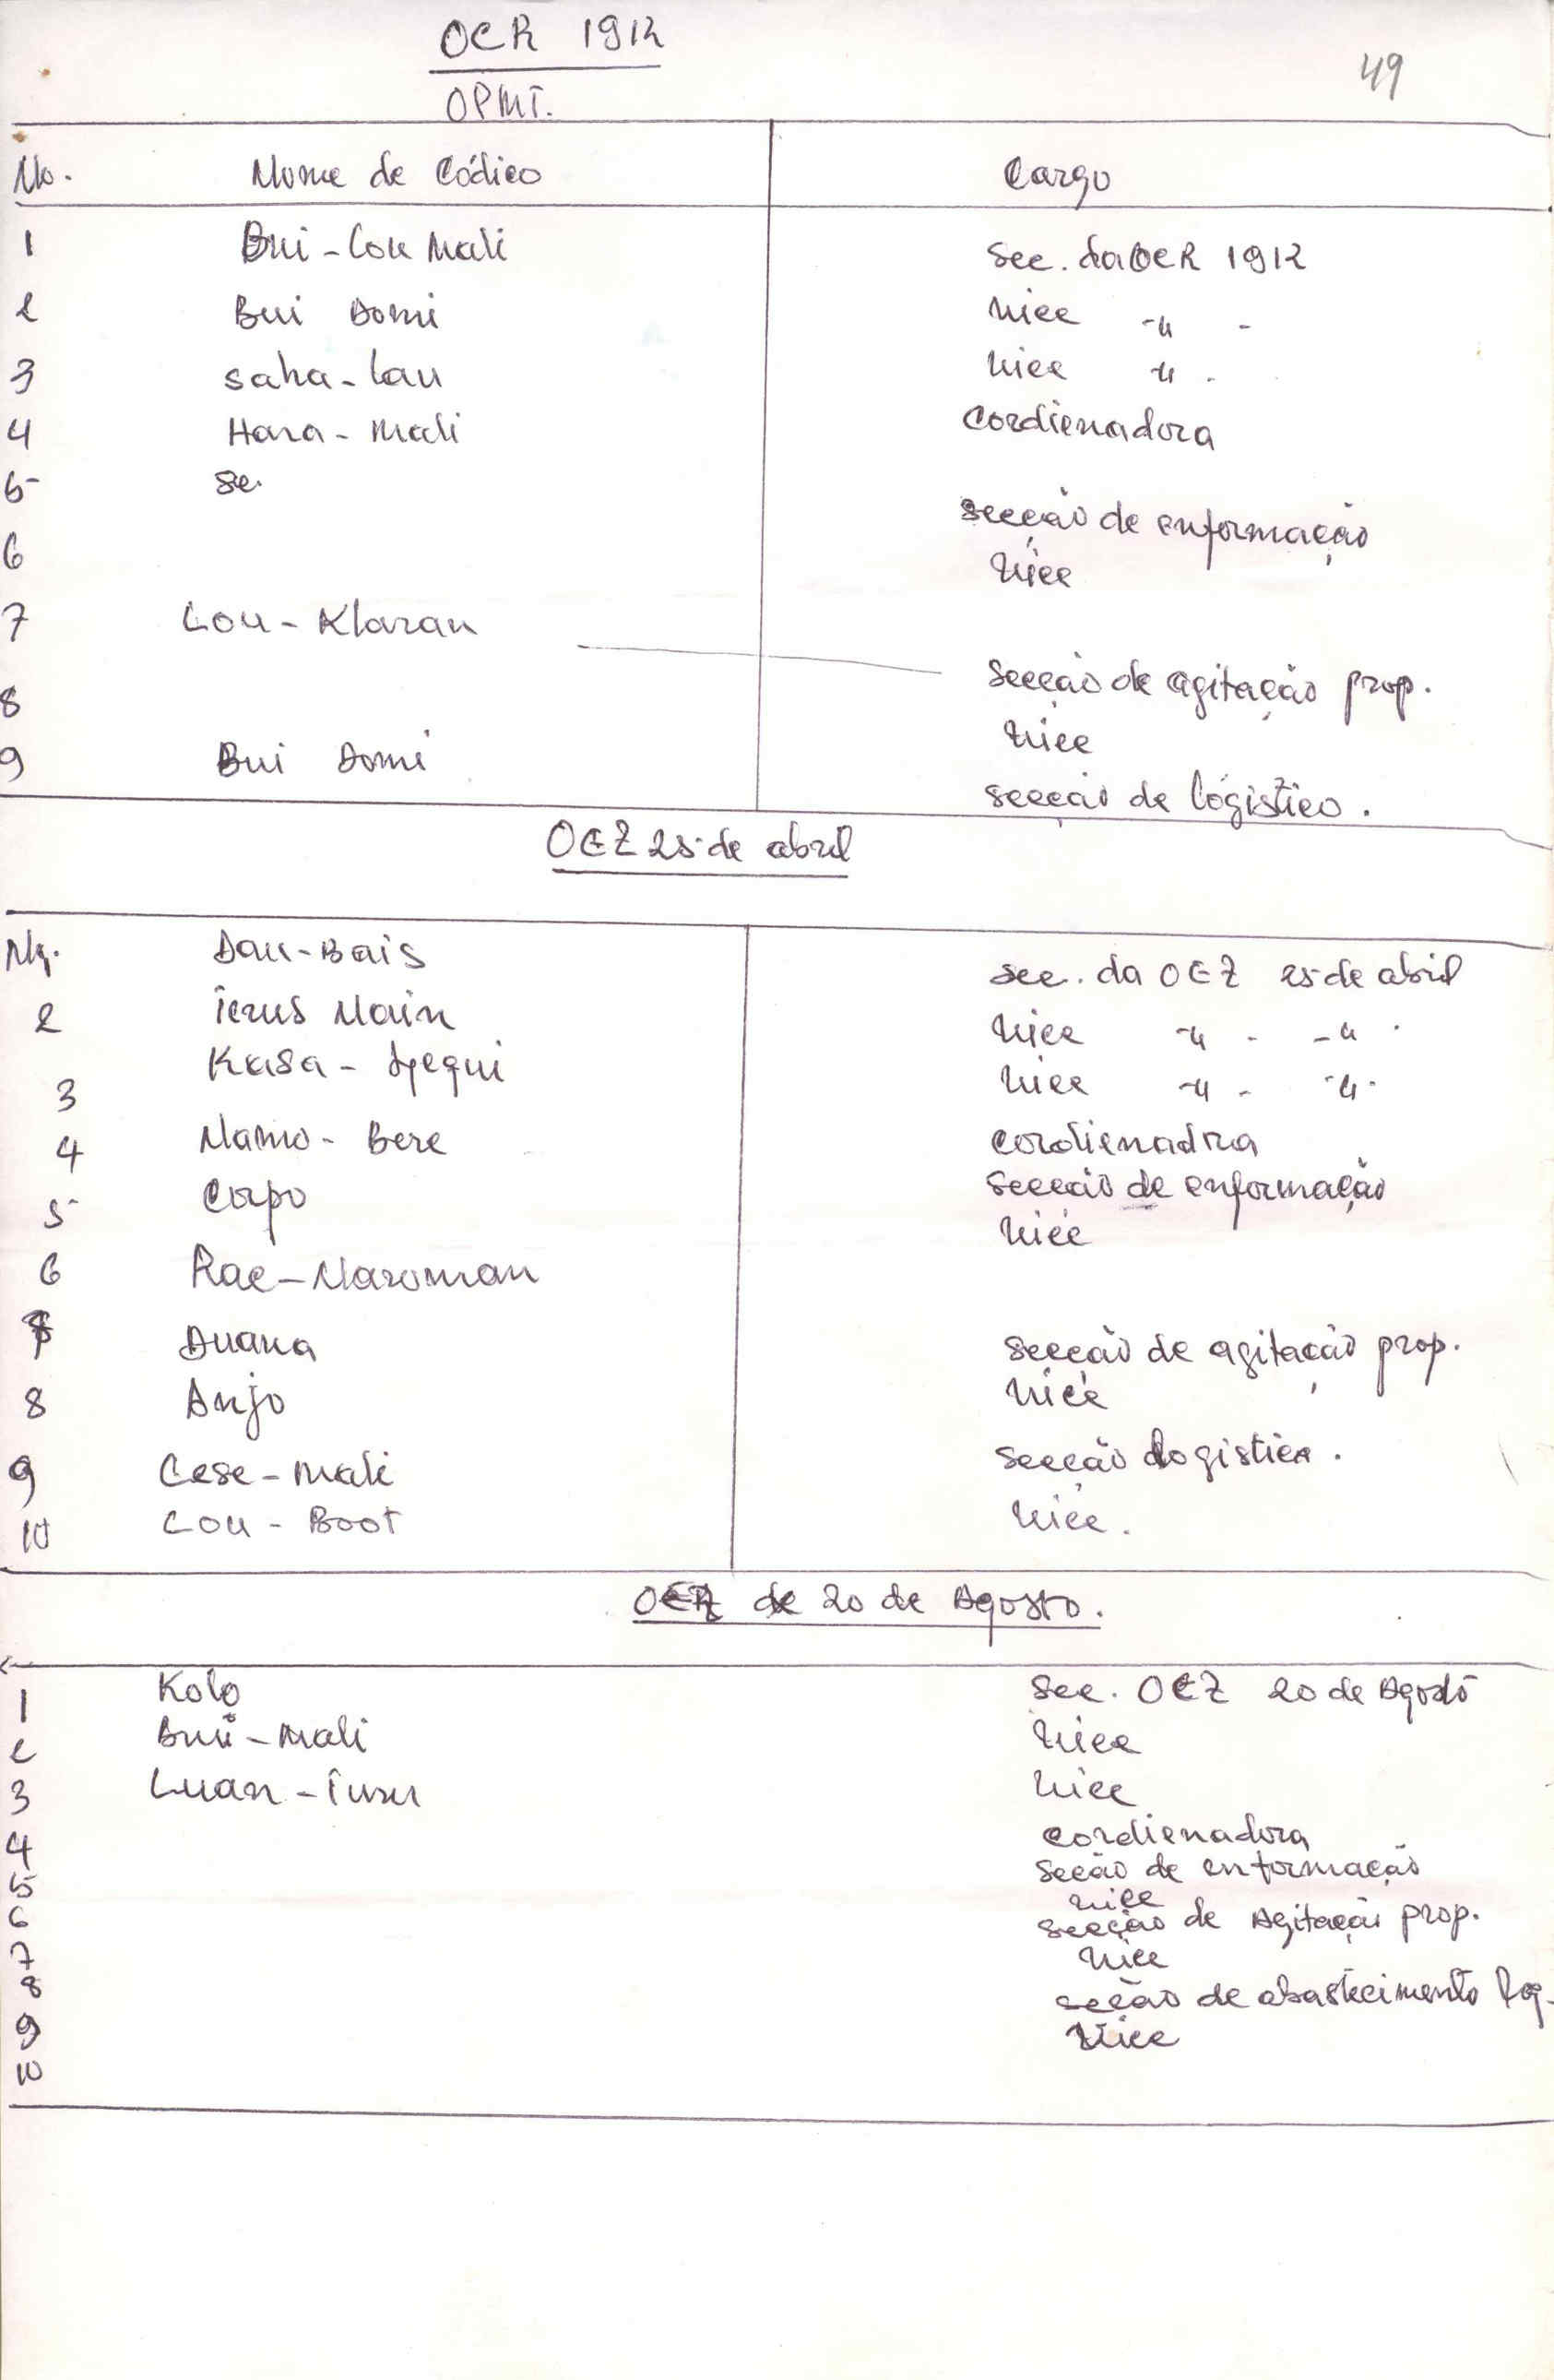 OCR 1912
49
OPMT.
No. Nome de Códico Cargo
1 Bui-Lou Mali Sec. da OCR 1912
2 Bui Domi Vice -"-
3 Saha-Lau Vice " -
4 Hana-Mali Cordienadora
5 Se.
secção de enformação
6 Vice
7 Lou-Klaran
secção de agitação prop.
8 Vice
9 Bui Domi
secção de lógistico.
OEZ 25 de abril
Dau-Bais Sec. da OEZ 25 de abril
2 Vice -"- -"-
Kasa-
3 Vice -"- -"-
4 Namo-Bere cordienadra
5 Corpo secção de enformação
Vice
6 Rae-Naroman
7 Auana secção de agitação prop.
8 Anjo Vice
9 Cese-Mali secção Logistica.
10 Lou-Boot Vice.
de 20 de Agosto.
1 Kolo Sec. OEZ 20 de Agosto
2 Bui-Mali Vice
3 Luan- Vice
4 cordienadora
5 secão de enformação
6 Vice
secção de Agitação prop.
7 Vice
8 secão de abastecimento log.
9 Vice
10